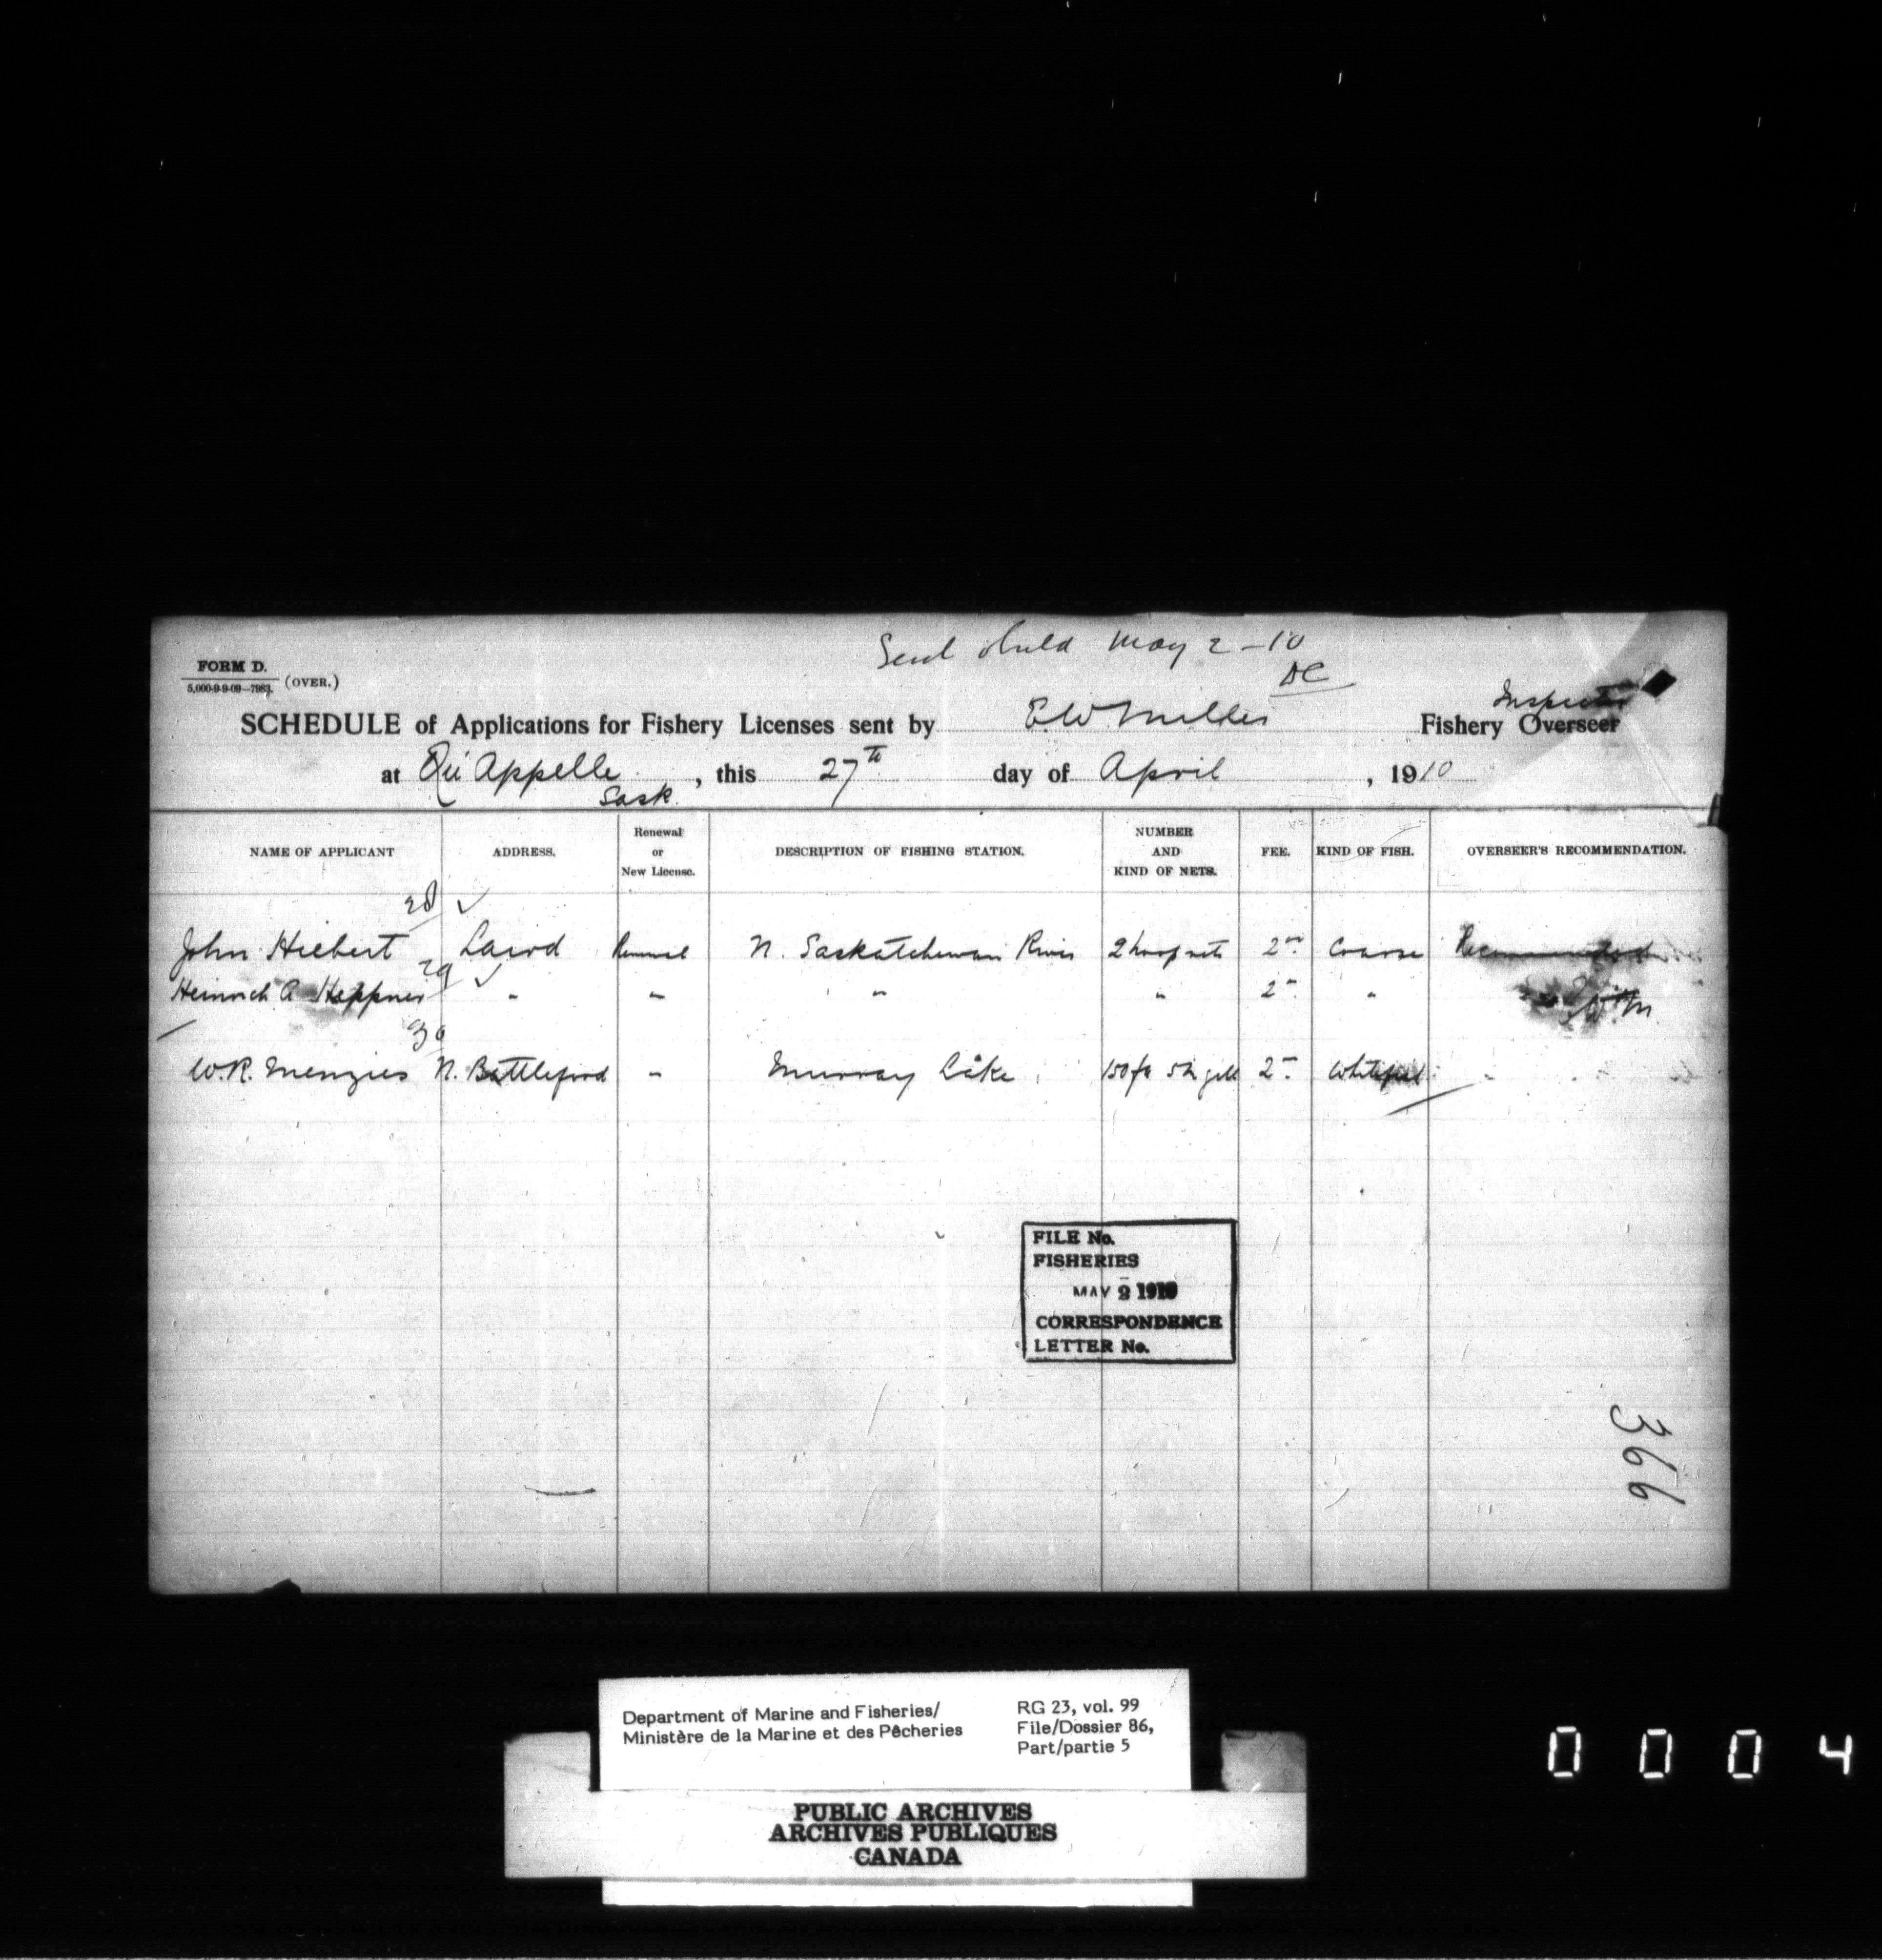 FORM D.
5,000-9-9-09—7983. (OVER.)
May 2-10
DC
SCHEDULE of Applications for Fishery Licenses sent by E.W. Miller Fishery Overseer Inspector
at Qu'Appelle Sask., this 27th day of April, 1910
NAME OF APPLICANT ADDRESS. Renewal or New License. DESCRIPTION OF FISHING STATION. NUMBER AND KIND OF NETS. FEE. KIND OF FISH. OVERSEER'S RECOMMENDATION.
28 ✓
John Hiebert Laird Renewal N. Saskatchewan River 2 hoop nets 2 00 Coarse Recommended
29 ✓
Heinrich A Heppner " " " " 2 " "
30
W.R. Menzies N. Battleford " Murray Lake 150 fa 5 in gill 2 Whitefish "
FILE No.
FISHERIES
MAY 2 1910
CORRESPONDENCE
LETTER No.
366
Department of Marine and Fisheries/
Ministère de la Marine et des Pêcheries
RG 23, vol. 99
File/Dossier 86,
Part/partie 5
PUBLIC ARCHIVES
ARCHIVES PUBLIQUES
CANADA
0004